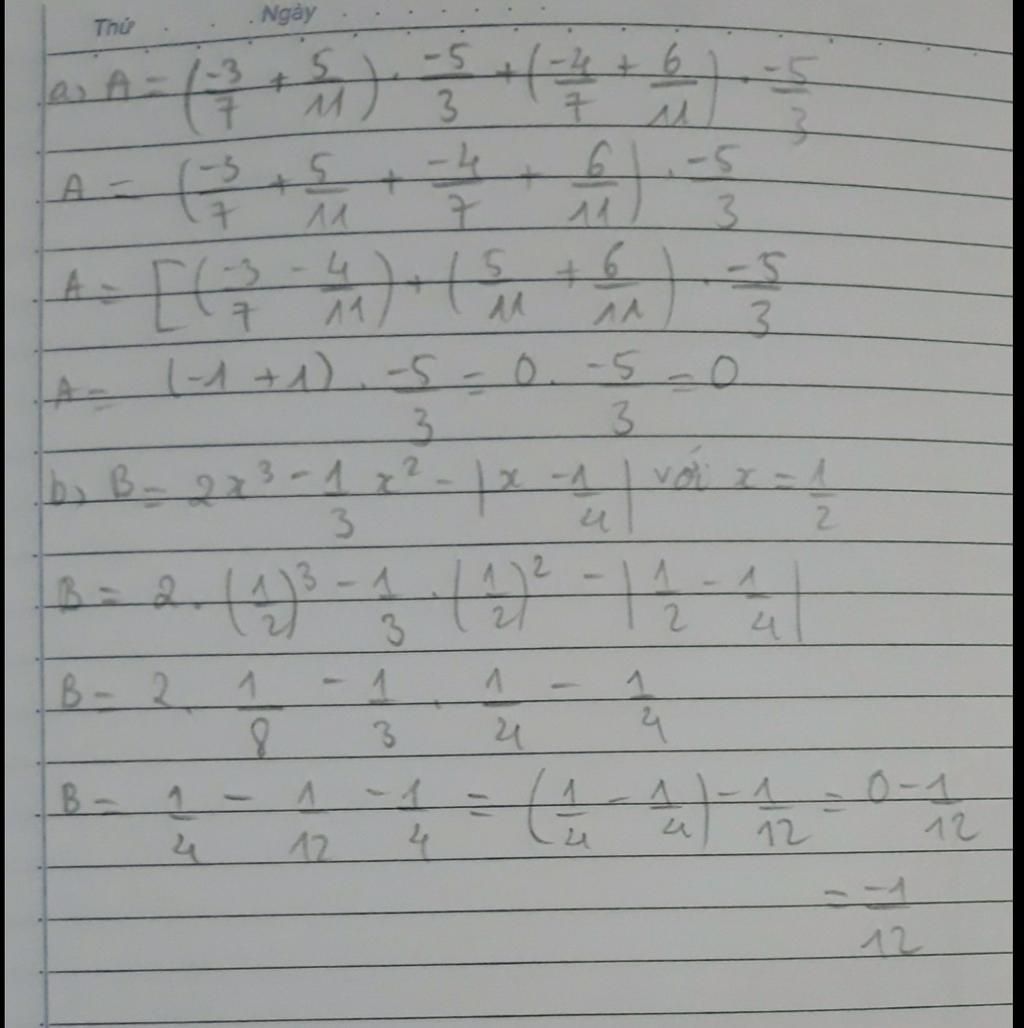 Thứ . . . . Ngày . . . . . . . .
a, A = (-3/7 + 5/11) . -5/3 + (-4/7 + 6/11) . -5/3
A = (-3/7 + 5/11 + -4/7 + 6/11) . -5/3
A = [(-3/7 - 4/11) + (5/11 + 6/11) . -5/3
A = (-1 + 1) . -5/3 = 0 . -5/3 = 0
b, B = 2x³ - 1/3 x² - |x - 1/4| với x = 1/2
B = 2 . (1/2)³ - 1/3 . (1/2)² - |1/2 - 1/4|
B = 2 . 1/8 - 1/3 . 1/4 - 1/4
B = 1/4 - 1/12 - 1/4 = (1/4 - 1/4) - 1/12 = 0 - 1/12
= -1/12